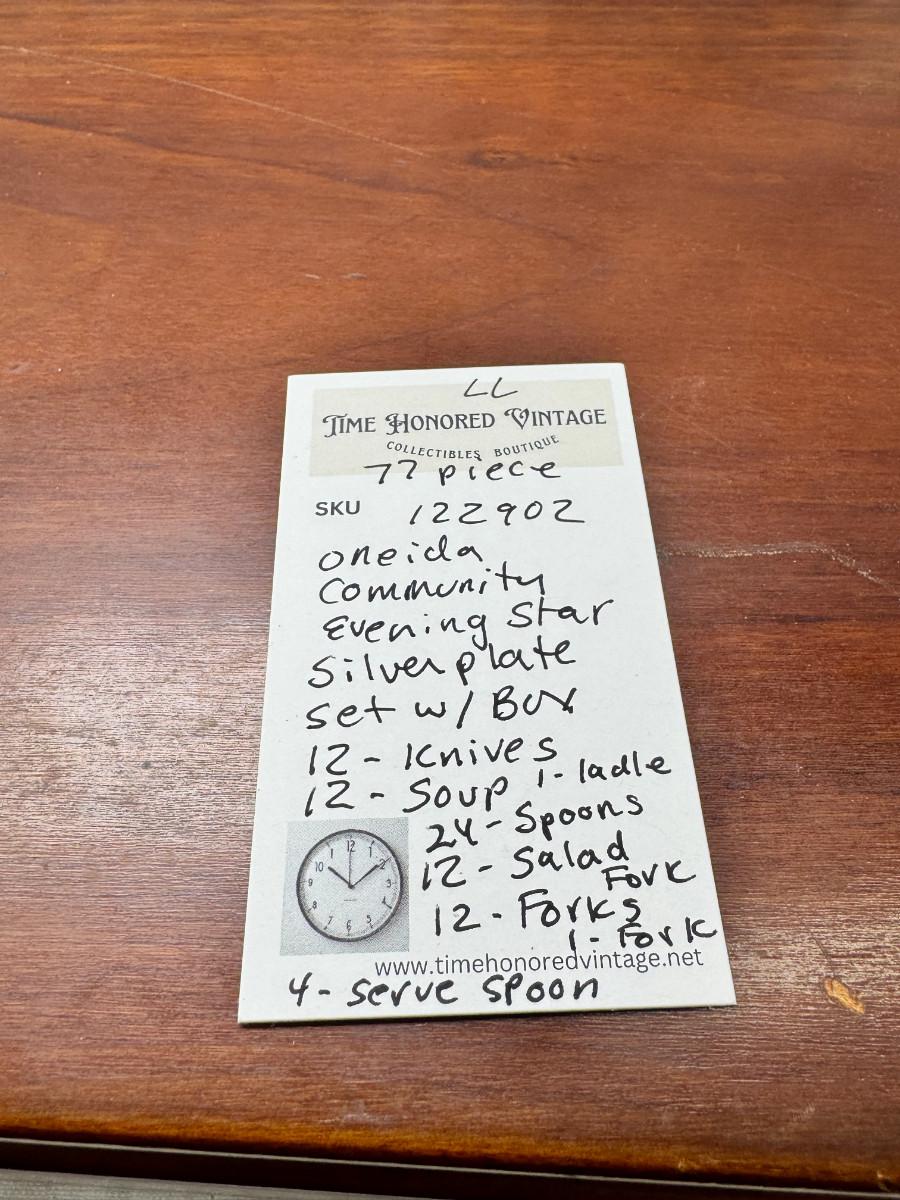 LL
TIME HONORED VINTAGE
COLLECTIBLES BOUTIQUE
77 piece
SKU 122902
oneida
Community
Evening Star
Silverplate
set w/ Box
12 - Knives
12 - Soup 1 - ladle
24 - Spoons
12 - Salad
Fork
12 - Forks
1 - Fork
12 1 2 3 4 5 6 7 8 9 10 11
www.timehonoredvintage.net
4 - serve spoon